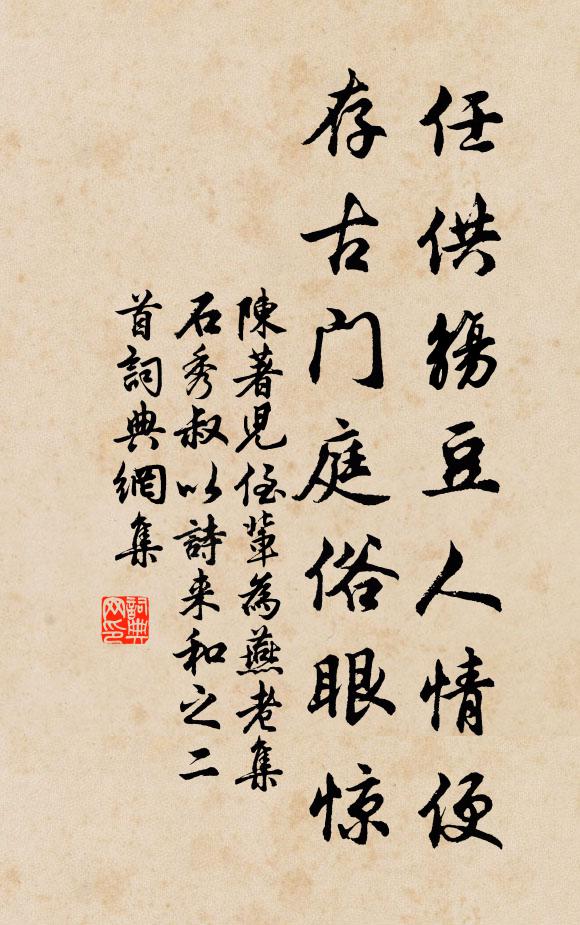 任供觴豆人情便
存古門庭俗眼惊
陳著児侄輩為燕老集
石秀叔以詩来和之二
首詞典網集
詞典网印